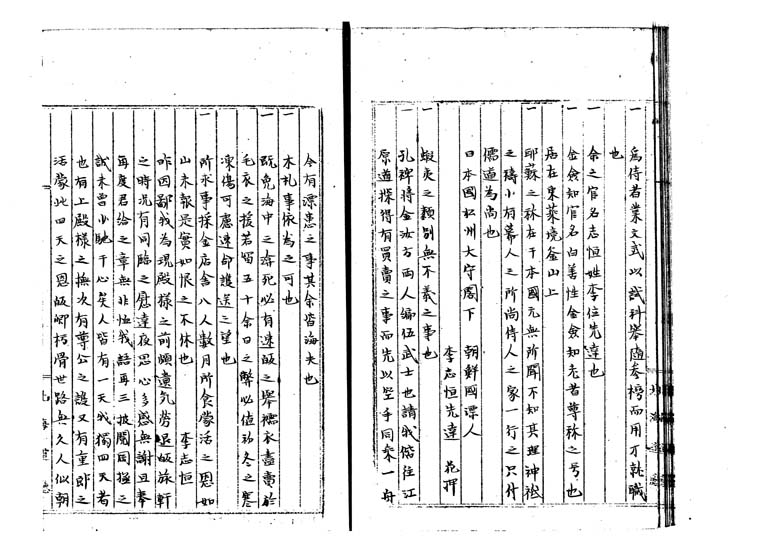 一 爲侍者業文武以試科擧隨參榜而用才就職
也
一 余之官名志恒姓李位先達也
一 金僉知官名白善性金僉知老者尊稱之号也
居在東萊境釜山上
一 耶蘇之秣在于本國元無所聞不知其理神祇
之禱小有幕人之所尚侍人之家一行之只什
儒道爲尚也
日本國松州大守閣下 朝鮮國漂人
李志恒先達 花押
一 蝦夷之類別無不義之事也
一 孔碑將金汝方両人編伍武士也請我偕往江
原道採得有買賣之事而先以空手同乘一舟
今有漂患之事其余皆海夫也
一 本札事依爲之可也
一 既免海中之渰死必有速皈之擧襦衣盡賣於
毛衣之援若留五十余日之弊必值玖冬之寒
凍傷可應速命護送之望也
一 所求事採金店舍八人數月所食蒙活之恩如
山未報是實如恨之不休也 李志恒
昨因鄙我爲現殿樣之前頗違氣労退皈旅軒
之時況有問臨之慰達夜思心多感無謝且奉
再度君給之章無非恒我語再三披閱罔極之
誠未嘗小馳于心矣人皆有一天我獨四天者
也有上殿樣之撫次有尊公之護又有重卽之
活蒙此四天之恩皈鄉朽骨世路與久人似朝